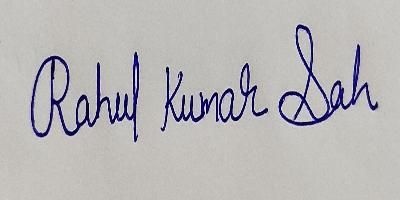 Rahul Kumar Sah